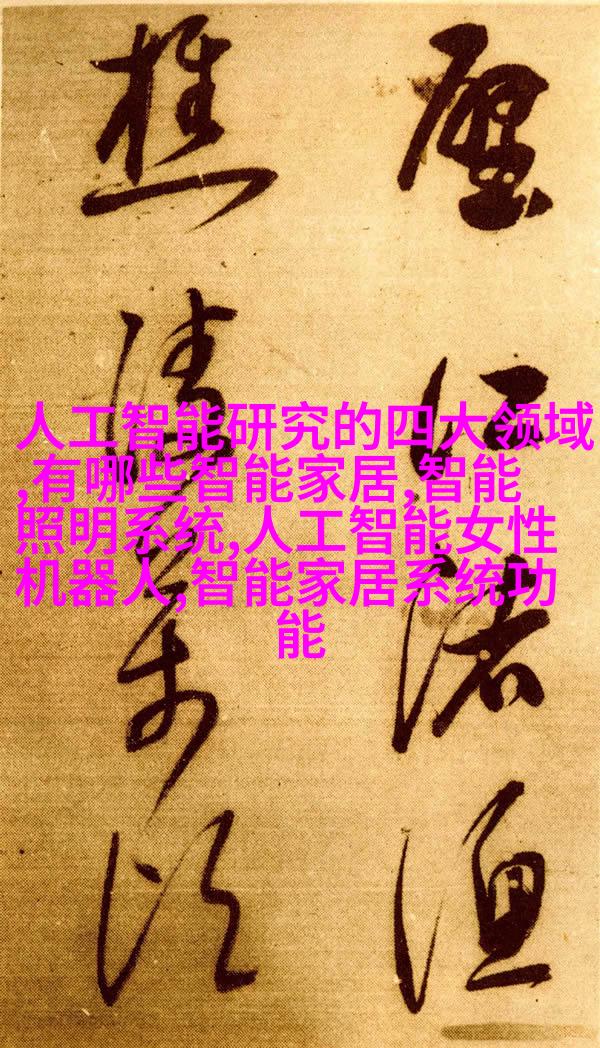 江渚漁
樵
人工智能研究的四大领域
,有哪些智能家居,智能
照明系统,人工智能女性
机器人,智能家居系统功
能